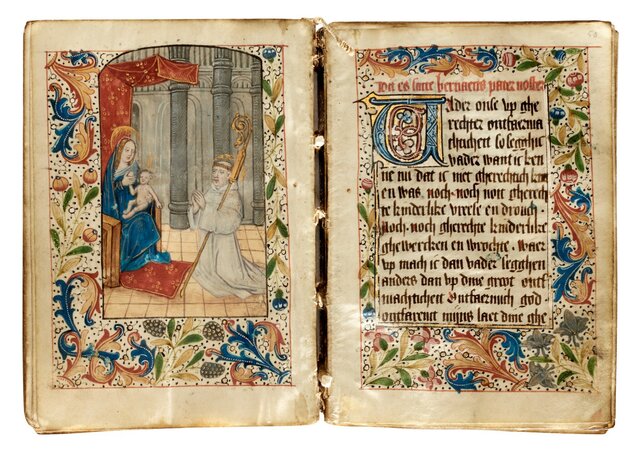 50
Dit es sante bernaerts pater noster
Uader onse vp ghe
rechter ontfarmа
chticheit so segghic
vader want ic ken
ne nu dat ic niet gherechtich ken
en was. noch noit gherech
te kinderlike vreese en drouch.
noch gherechte kinderlike
ghewercken en wrochte. waer
vp mach ic dan vader segghen
anders dan vp dine groot ontf
machticheit Ontfarmich god
ontfarent mijns laet dine ghe